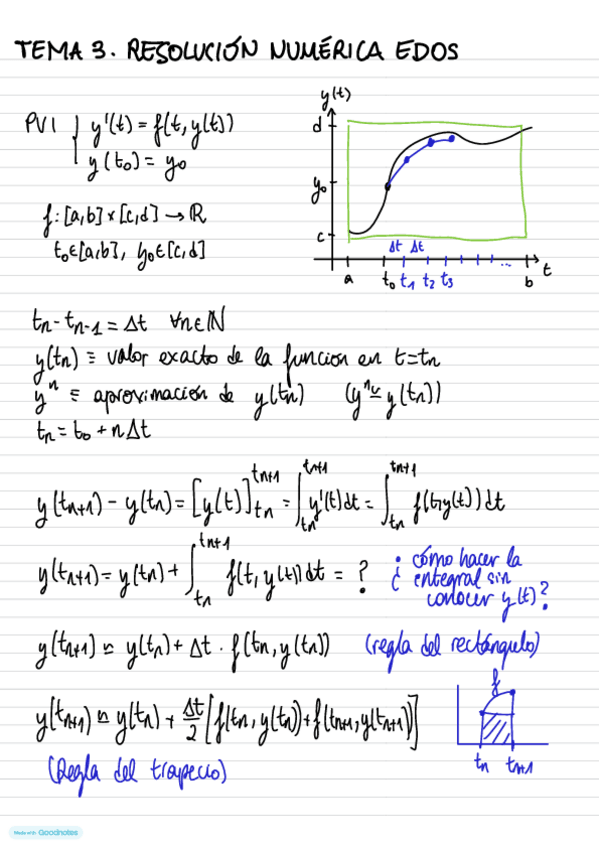 TEMA 3. RESOLUCIÓN NUMÉRICA EDOS
y(t)
PVI { y'(t) = f(t, y(t))
y(t₀) = y₀
d
y₀
c
f: [a,b] × [c,d] → ℝ
t₀∈[a,b], y₀∈[c,d]
Δt Δt
a t₀ t₁ t₂ t₃ ... b t
tₙ - tₙ₋₁ = Δt ∀n∈ℕ
y(tₙ) ≡ valor exacto de la funcion en t=tₙ
yⁿ ≡ aproximación de y(tₙ) (yⁿ ≃ y(tₙ))
tₙ = t₀ + nΔt
y(tₙ₊₁) - y(tₙ) = [y(t)]_{tₙ}^{tₙ₊₁} = ∫_{tₙ}^{tₙ₊₁} y'(t)dt = ∫_{tₙ}^{tₙ₊₁} f(t,y(t))dt
y(tₙ₊₁) = y(tₙ) + ∫_{tₙ}^{tₙ₊₁} f(t, y(t))dt = ?
¿cómo hacer la
integral sin
conocer y(t)?
y(tₙ₊₁) ≃ y(tₙ) + Δt · f(tₙ, y(tₙ)) (regla del rectángulo)
y(tₙ₊₁) ≃ y(tₙ) + Δt/2 [f(tₙ, y(tₙ)) + f(tₙ₊₁, y(tₙ₊₁))]
f
tₙ tₙ₊₁
(Regla del trapecio)
Made with Goodnotes